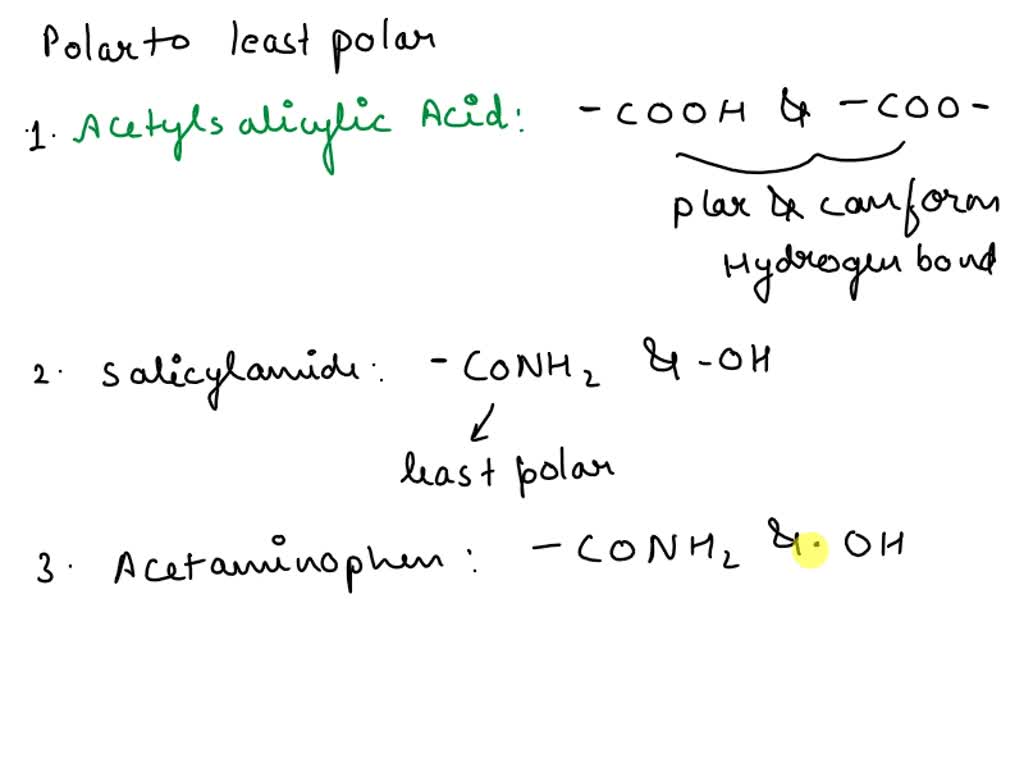 Polar to least polar
1. Acetylsalicylic Acid: -COOH & -COO-
plar & can form
Hydrogen bond
2. Salicylamide: -CONH2 & -OH
least polar
3. Acetaminophen: -CONH2 & · OH